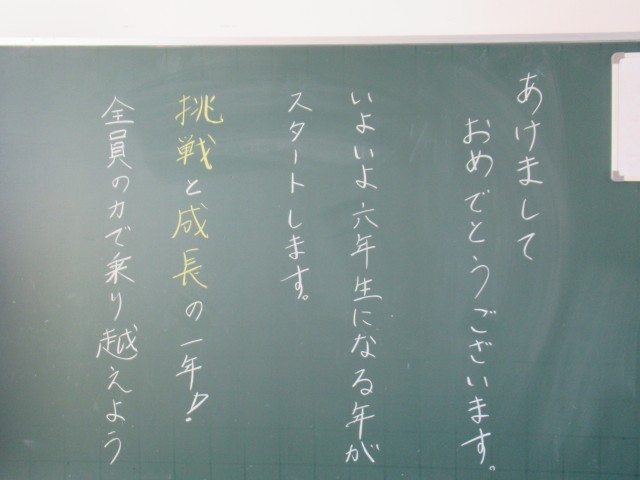 あけまして
おめでとうございます。
いよいよ六年生になる年が
スタートします。
挑戦と成長の一年!
全員の力で乗り越えよう